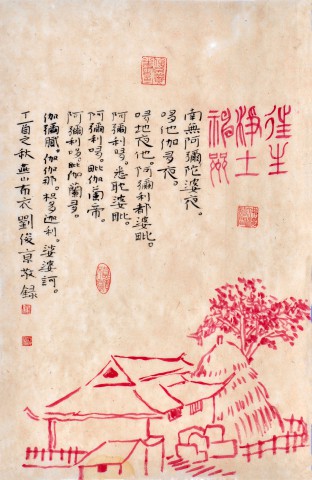 往生
淨土
神咒
南無阿彌陀婆夜。
哆他伽多夜。
哆地夜他。阿彌利都婆毗。
阿彌利哆。悉耽婆毗。
阿彌利哆。毗伽蘭帝。
阿彌利哆。毗伽蘭多。
伽彌膩。伽伽那。枳多迦利。娑婆訶。
丁酉之秋燕山布衣劉俊京敬録